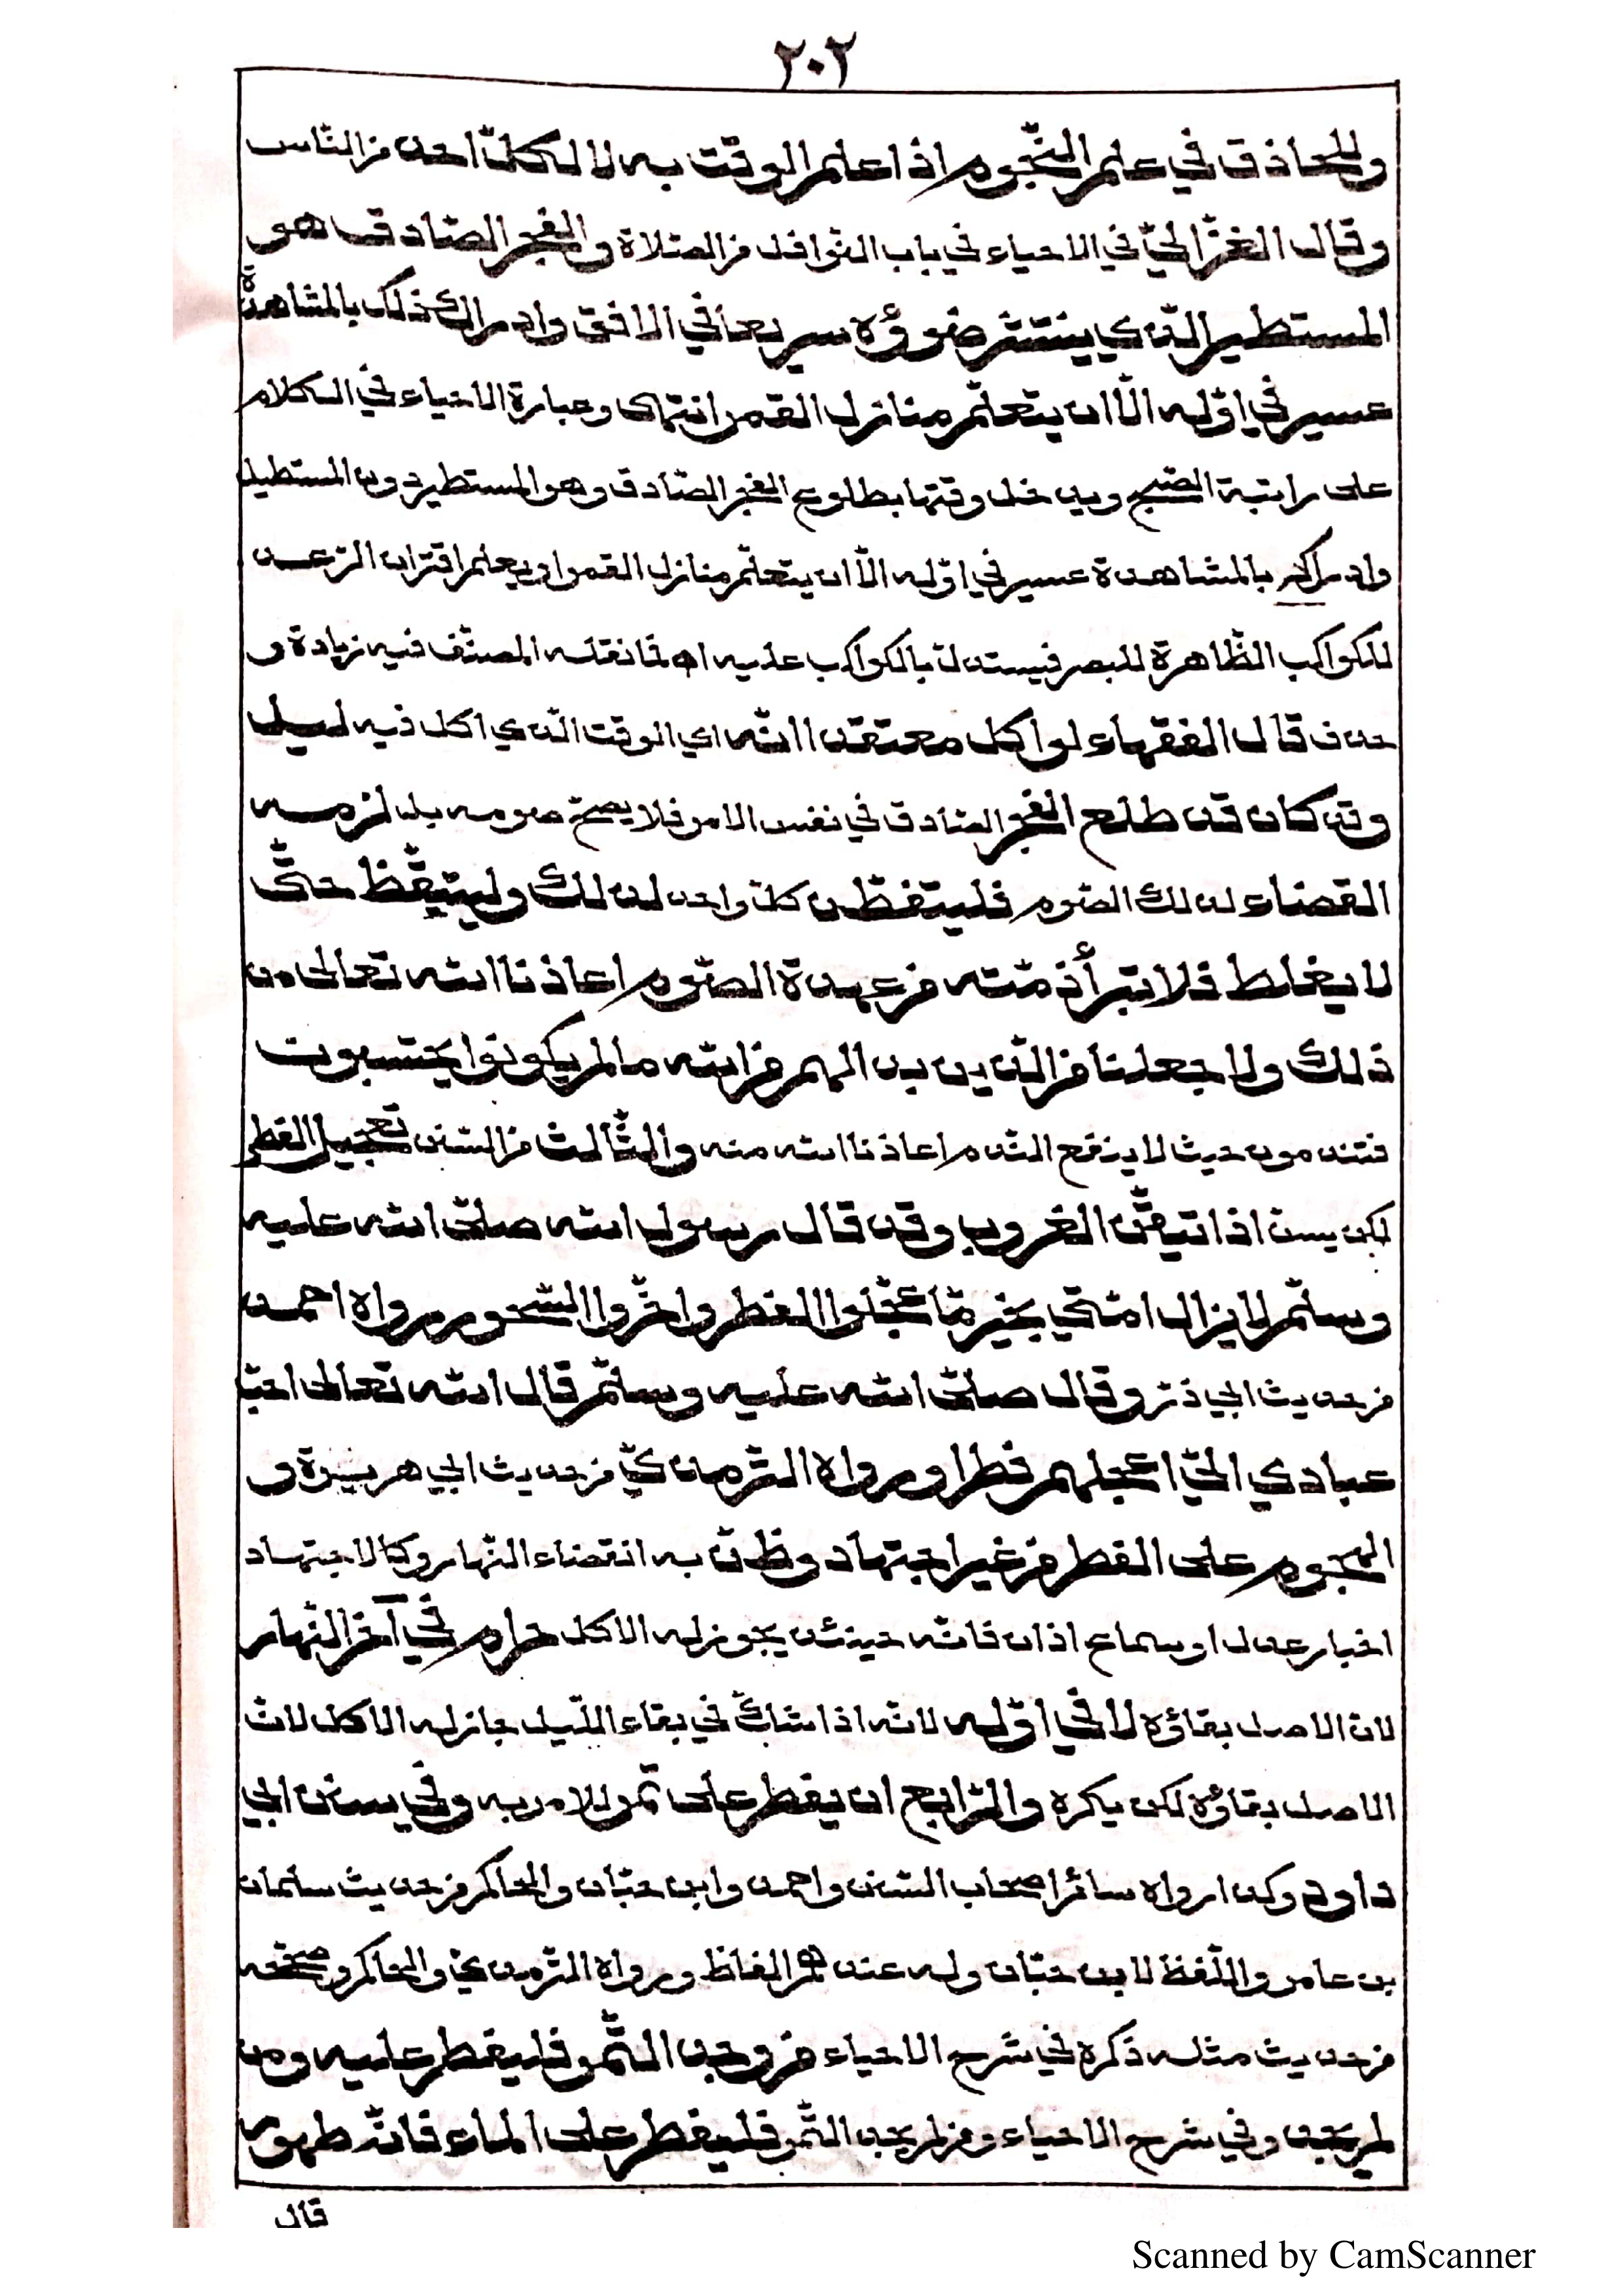 ٢٠٢
وللحاذق في علم النّجوم اذا علم الوقت به لا لكلّ احد من النّاس
وقال الغزّاليّ في الاحياء في باب النّوافل من الصّلاة والفجر الصّادق هو
المستطير الّذي ينتشر ضوؤه سريعا في الافق وادراك ذلك بالمشاهدة
عسير في اوّله الّا ان يتعلّم منازل القمر انتهى وعبارة الاحياء في الكلام
على راتبة الصّبح ويدخل وقتها بطلوع الفجر الصّادق وهو المستطير دون المستطيل
وادراكه بالمشاهدة عسير في اوّله الّا ان يتعلّم منازل القمر او يعلم اقتران
للكواكب الظّاهرة للبصر فيستدلّ بالكواكب عليه اه فما نقله المصنّف فيه زيادة و
حذف قال الفقهاء لو اكل معتقدا انّه اي الوقت الّذي اكل فيه ليل
وقد كان قد طلع الفجر الصّادق في نفس الامر فلا يصحّ صومه بل لزمه
القضاء لذلك الصّوم فليتفطّن كلّ واحد لذلك وليتيقّظ حتّى
لا يغلط فلا تبرأ ذمّته من عهدة الصّوم اعاذنا الله تعالى من
ذلك ولا جعلنا من الّذين بدا لهم من الله ما لم يكونوا يحتسبون
فتندمون حيث لا ينفع النّدم اعاذنا الله منه والثّالث من السّنن تعجيل الفطر
لكن يسنّ اذا تيقّن الغروب وقد قال رسول الله صلّى الله عليه
وسلّم لا يزال امّتي بخير ما عجّلوا الفطر واخّروا السّحور رواه احمد
من حديث ابي ذرّ وقال صلّى الله عليه وسلّم قال الله تعالى احبّ
عبادي اليّ اعجلهم فطرا ورواه التّرمذيّ من حديث ابي هريرة و
الهجوم على الفطر من غير اجتهاد وظنّ به انقضاء النّهار وكالاجتهاد
اخبار عدل او سماع اذان فانّه حينئذ يجوز له الاكل حرام في آخر النّهار
لان الاصل بقاؤه لا في اوّله لانّه اذا شكّ في بقاء اللّيل جاز له الاكل لانّ
الاصل بقاؤه لكن يكره والرّابع ان يفطر على تمر للامر به وفي سنن ابي
داود وكذا رواه سائر اصحاب السّنن واحمد وابن حبّان والحاكم من حديث سلمان
بن عامر واللّفظ لابن حبّان وله عندهم الفاظ ورواه التّرمذيّ والحاكم وصحّحه
من حديث مثله ذكره في شرح الاحياء من وجد التّمر فليفطر عليه ومن
لم يجد وفي شرح الاحياء ومن لم يجد التّمر فليفطر على الماء فانّه طهور
قال
Scanned by CamScanner